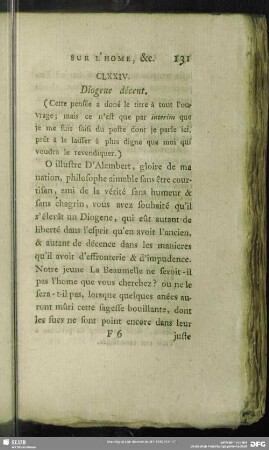 SUR L'HOME, &c. 131
CLXXIV.
Diogene décent.
(Cette pensée a doné le titre à tout l'ou-
vrage; mais ce n'est que par interim que
je me suis saisi du poste dont je parle ici,
prêt à le laisser à plus digne que moi qui
voudra le revendiquer.)
O illustre D'Alembert, gloire de ma
nation, philosophe aimable sans être cour-
tisan, ami de la vérité sans humeur &
sans chagrin, vous avez souhaité qu'il
s'élevât un Diogene, qui eût autant de
liberté dans l'esprit qu'en avoit l'ancien,
& autant de décence dans les manieres
qu'il avoit d'effronterie & d'impudence.
Notre jeune La Beaumelle ne seroit-il
pas l'home que vous cherchez? ou ne le
sera-t-il pas, lorsque quelques anées au-
ront mûri cette sagesse bouillante, dont
les sucs ne sont point encore dans leur
F 6 juste
SLUB
DFG